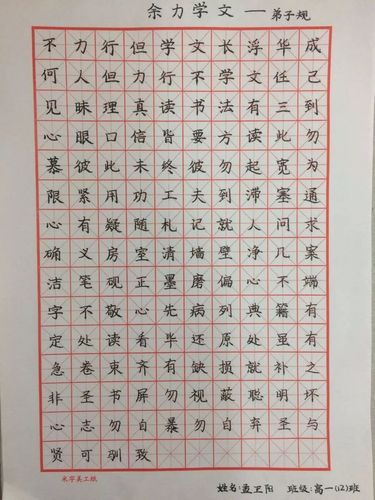 余力学文 — 弟子规
不力行但学文长浮华成
何人但力行不学文任己
见昧理真读书法有三到
心眼口信皆要方读此勿
慕彼此未终彼勿起宽为
限紧用功工夫到滞塞通
心有疑随札记就人问求
确义房室清墙壁净几案
洁笔砚正墨磨偏心不端
字不敬心先病列典籍有
定处读看毕还原处虽有
急卷束齐有缺损就补之
非圣书屏勿视蔽聪明坏
心志勿自暴勿自弃圣与
贤可驯致
米字美工纸
姓名:孟卫阳 班级:高一(12)班